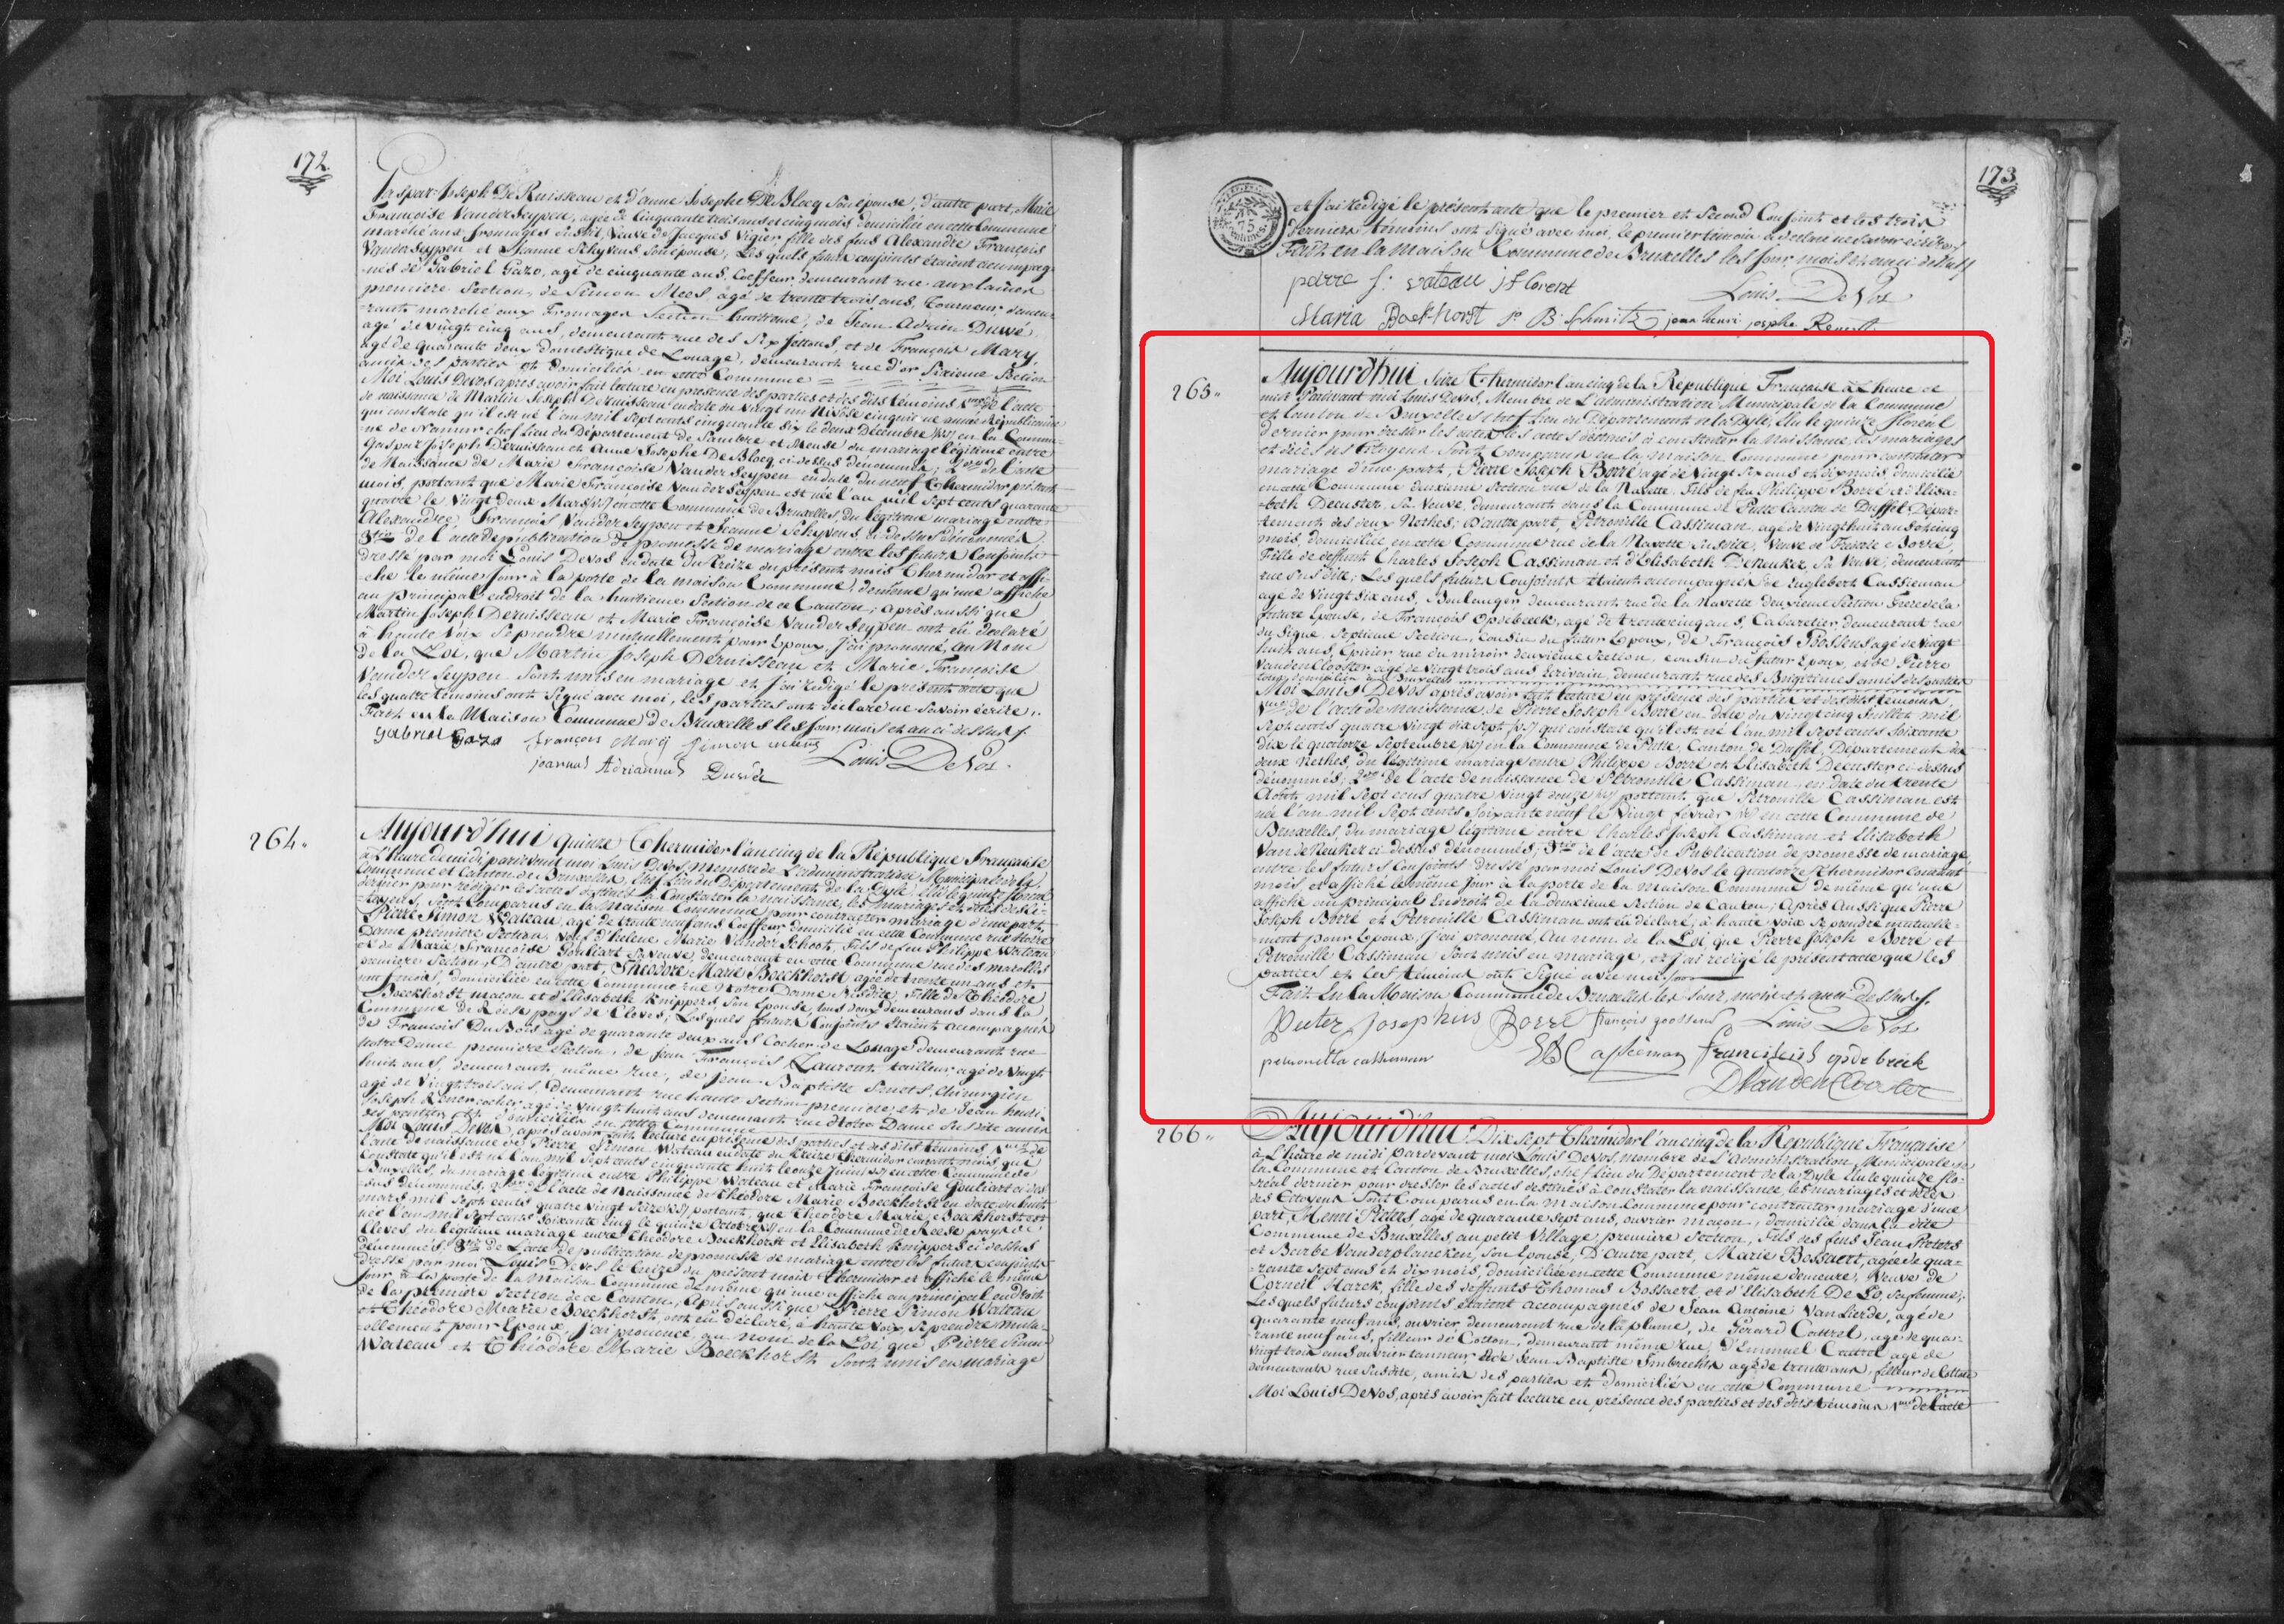 172.
Gaspar Joseph De Ruisseau et d'anne Josephe De Blocq son épouse, d'autre part, Marie
Françoise Vander Seypen, agée de Cinquante trois ans et cinq mois domiciliée en cette Commune
marché aux fromages susdit, Veuve de Jacques Vigier, fille des feus Alexandre François
Vander Seypen et Jeanne Schyvens son épouse; Les quels futurs conjoints étaient accompag-
-nés de Gabriel Gazo, agé de cinquante ans, Coeffeur demeurant rue aux laines
premiere Section, de Simon Mees, agé de trente trois ans, Tourneur, demeu-
-rant marché aux Fromages Section huitieme, de Jean Adrien Duwé
agé de vingt cinq ans, demeurant rue des Six Jettons, et de François Mary,
agé de quarante deux domestique de Louage, demeurant rue d'or Sixieme Section
amis des parties et domiciliés en cette Commune
Moi Louis Devos après avoir fait lecture en présence des parties et des dits témoins 1mo de l'acte
de naissance de Martin Joseph Deruisseau en date du vingt un Nivôse cinquième année Républicaine
qui constate qu'il est né l'an mil sept cents cinquante six le deux Décembre (vs) en la Commu-
-ne de Namur chef Lieu du Département de Sambre et Meuse du mariage légitime entre
Gaspar Joseph Deruisseau et Anne Josephe De Blocq ci-dessus dénommés; 2do de l'acte
de Naissance de Marie Françoise Vander Seypen en date du neuf Thermidor présent
mois, portant que Marie Françoise Vander Seypen est née l'an mil sept cents quarante
quatre le Vingt deux Mars (vs) en cette Commune de Bruxelles, du légitime mariage entre
Alexandre François Vander Seypen et Jeanne Schyvens, ci-dessus dénommés
3tio de l'acte de publication de promesse de mariage entre les futurs Conjoints
dressé par moi Louis Devos en date du treize du présent mois Thermidor et affi-
-che le même jour à la porte de la maison Commune, de même qu'une affiche
au principal endroit de la huitieme Section de ce Canton; après aussi que
Martin Joseph Deruisseau et Marie Françoise Vander Seypen ont eu déclaré
à haute Voix Se prendre mutuellement pour Epoux, j'ai prononcé, au Nom
de la Loi, que Martin Joseph Deruisseau et Marie Françoise
Vander Seypen Sont unis en mariage et j'ai rédigé le présent acte que
les quatre témoins ont signé avec moi, les parties ont déclaré ne savoir écrire.
Fait en la Maison Commune de Bruxelles les jour, mois et an ci dessus
Gabriel Gazo françois Marÿ Simon mees
joannes Adriannus Duwé Louis DeVos
264.
Aujourd'hui quinze Thermidor l'an cinq de la République Française
à l'heure de midi pardevant moi Louis DeVos Membre de L'administration Municipale de la
Commune et Canton de Bruxelles, chef Lieu du Département de la Dyle, élu le quinze floréal
dernier pour rédiger les actes destinés à Constater la naissance, les mariages et décès des Ci-
-toyens, Sont Comparus en la Maison Commune pour contracter mariage d'une part,
Pierre Simon Wateau, agé de trente neuf ans Coeffeur domicilié en cette Commune rue Notre
Dame premiere Section, veuf d'helene Marie Vander Schoot, fils de feu Philippe Wateau
et de Marie Françoise Gouliart sa veuve, demeurant en cette Commune rue des marolles
premiere Section, D'autre part, Théodore Marie Boeckhorst agée de trente un ans et
neuf mois, domiciliée en cette Commune rue Notre Dame susdite, fille de Théodore
Boeckhorst maçon et d'Elisabeth Knippers son Epouse, tous deux demeurans dans la
Commune de Reese pays de Cleves; Les quels futurs Conjoints étaient accompagnés
de François DuBois agé de quarante deux ans Cocher de Louage demeurant rue
Notre Dame premiere Section, de Jean François Laurent, tailleur, agé de Vingt
huit ans, demeurant même rue, de jean Baptiste Smets, Chirurgien
agé de Vingt trois ans, demeurant rue haute Section premiere, et de Jean henri
Joseph Rener cocher agé de vingt huit ans demeurant rue Notre Dame susdite amis
des parties, et domiciliés en cette Commune
Moi Louis DeVos, après avoir fait lecture en présence des parties et des dits témoins 1mo de
l'acte de naissance de Pierre Simon Wateau en date du treize Thermidor courant mois, qui
Constate qu'il est né l'an mil Sept cents cinquante huit le onze Juin (vs) en cette Commune de
Bruxelles, du mariage légitime entre Philippe Wateau et Marie Françoise Gouliart ci-des-
-sus dénommés, 2do de l'acte de Naissance de Théodore Marie Boeckhorst en date du huit
mars mil Sept cents quatre vingt seize (vs) portant, que Théodore Marie Boeckhorst est
née l'an mil Sept cents soixante cinq le quinze Octobre (vs) en la Commune de Reese pays de
Cleves, du légitime mariage entre Théodore Boeckhorst et Elisabeth Knippers ci dessus
dénommés, 3tio de L'acte de publication de promesse de mariage entre les futurs conjoints
dressé par moi Louis DeVos le treize du présent mois Thermidor et affiché le même
jour, à la porte de la Maison Commune de même qu'une affiche au principal endroit
de la premiere Section de ce Canton; Après aussi que Pierre Simon Wateau
et Théodore Marie Boeckhorst, ont eu déclaré, à haute voix, se prendre mutu-
-ellement pour Epoux, j'ai prononcé, au nom de la Loi, que Pierre Simon
Wateau et Théodore Marie Boeckhorst Sont unis en mariage
173
et j'ai rédigé le présent acte que le premier et second Conjoint et les trois
derniers témoins ont signé avec moi, le premier témoin a déclaré ne savoir écrire
Fait en la Maison Commune de Bruxelles les jour, mois et an ci-dessus
pierre S: vateau j f lorent Louis DeVos
Maria Boekhorst J: B: Schmitz jean henri josephe
265.
Aujourd'hui Seize Thermidor l'an cinq de la République Française à L'heure de
midi Pardevant moi Louis DeVos, Membre de L'administration Municipale de la Commune
et Canton de Bruxelles chef Lieu du Département de la Dyle, élu le quinze floréal
dernier pour dresser les actes destinés à constater la Naissance, les mariages
et décès des Citoyens Sont Comparus en la Maison Commune pour contracter
mariage d'une part, Pierre Joseph Borré agé de Vingt Six ans et dix mois, domicilié
en cette Commune deuxieme Section rue de la Navette, Fils de feu Philippe Borré et d'Elisa-
-beth Deceuster, sa Veuve, demeurante dans la Commune de Putte Canton de Duffel, Dépar-
-tement des deux Nethes; D'autre part, Petronille Cassiman, agée de Vingt huit ans et cinq
mois, domiciliée en cette Commune rue de la Navette susdite, Veuve de Borré,
Fille de deffunt Charles Joseph Cassiman et d'Elisabeth DeKeuker, sa Veuve, demeurant
rue sus dite; Les quels futurs Conjoints étaient accompagnés de Englebert Cassieman
agé de Vingt Six ans, Boulanger demeurant rue de la Navette deuxieme Section Frere de la
future Epouse, de François Opdebeeck, agé de trente cinq ans, Cabaretier, demeurant rue
du Signe, Septieme Section, Cousin du futur Epoux, de François agé de vingt
huit ans, Epicier rue du miroir deuxieme Section, cousin du futur Epoux, et de Pierre
Vanden Clooster agé de vingt trois ans Ecrivain, demeurant rue des Brigittines amis des parties
tous domiciliés à Bruxelles
Moi Louis DeVos après avoir fait lecture en présence des parties et des dits témoins
1mo de l'acte de naissance de Pierre Joseph Borré en date du Vingt cinq Juillet mil
Sept cents quatre Vingt dix Sept (vs) qui constate qu'il est né l'an mil Sept cents Soixante
dix le quatorze Septembre (vs) en la Commune de Putte, Canton de Duffel, Département des
deux Nethes, du légitime mariage entre Philippe Borré et Elisabeth Deceuster ci-dessus
dénommés; 2do de l'acte de naissance de Pétronille Cassiman, en date du trente
Août mil Sept cens quatre Vingt douze (vs) portant, que Petronille Cassiman est
née l'an mil Sept cents Soixante neuf le Vingt février (vs) en cette Commune de
Bruxelles, du mariage légitime entre Charles Joseph Cassiman et Elisabeth
Van de Keuker ci-dessus dénommés; 3tio de l'acte de Publication de promesse de mariage
entre les futurs Conjoints dressé par moi Louis DeVos le quatorze Thermidor courant
mois, et affiché le même jour à la porte de la Maison Commune de même qu'une
affiche au principal Endroit de la deuxieme Section de Canton; Après Aussi que Pierre
Joseph Borré et Petronille Cassiman ont eu déclaré, à haute Voix se prendre mutuelle-
-ment pour Epoux, j'ai prononcé, Au nom de la Loi, que Pierre Joseph Borré et
Petronille Cassiman Sont unis en mariage, et j'ai rédigé le présent acte que les
parties et les témoins ont Signé avec moi
Fait En la Maison Commune de Bruxelles les Jour, mois et an ci-dessus
Pieter Josephus Borre françois goossens Louis DeVos
petronella cassieman E Cassieman franciscus opde beeck
Vanden Clooster
266.
Aujourd'hui Dix sept Thermidor l'an cinq de la République Française
à L'heure de midi Pardevant moi Louis DeVos, membre de L'administration Municipale de
la Commune et Canton de Bruxelles, chef lieu du Département de la Dyle élu le quinze flo-
réal dernier pour dresser les actes destinés à constater la naissance, les mariages et décès
des Citoyens Sont Comparus en la Maison Commune pour contracter mariage d'une
part, Henri Pieters, agé de quarante Sept ans, ouvrier maçon, domicilié dans la dite
Commune de Bruxelles, au petit Village, premiere Section, Fils des feus Jean Pieters
et Barbe Vanderplancken, Son Epouse, D'autre part, Marie Bossaert, agée de qua-
-rante Sept ans et dix mois, domiciliée en cette Commune même demeure, Veuve de
Corneil Harck, fille des deffunts Thomas Bossaert et d'Elisabeth De Lo, Sa femme;
Les quels futurs conjoints étaient accompagnés de Jean Antoine Van Lierde, agé de
quarante neuf ans, ouvrier, demeurant rue de la plume, de Gérard Cattrel, agé de qua-
-rante neuf ans, filleur de Cotton, demeurant même rue, d'Emmuel Cattrel agé de
vingt trois ans ouvrier tanneur, et de Jean Baptiste Imbrechts agé de trente ans, filleur de Cotton
demeurants rue susdite, amis des parties et domiciliés en cette Commune
Moi Louis DeVos, après avoir fait lecture en présence des parties et des dits témoins 1mo de l'acte